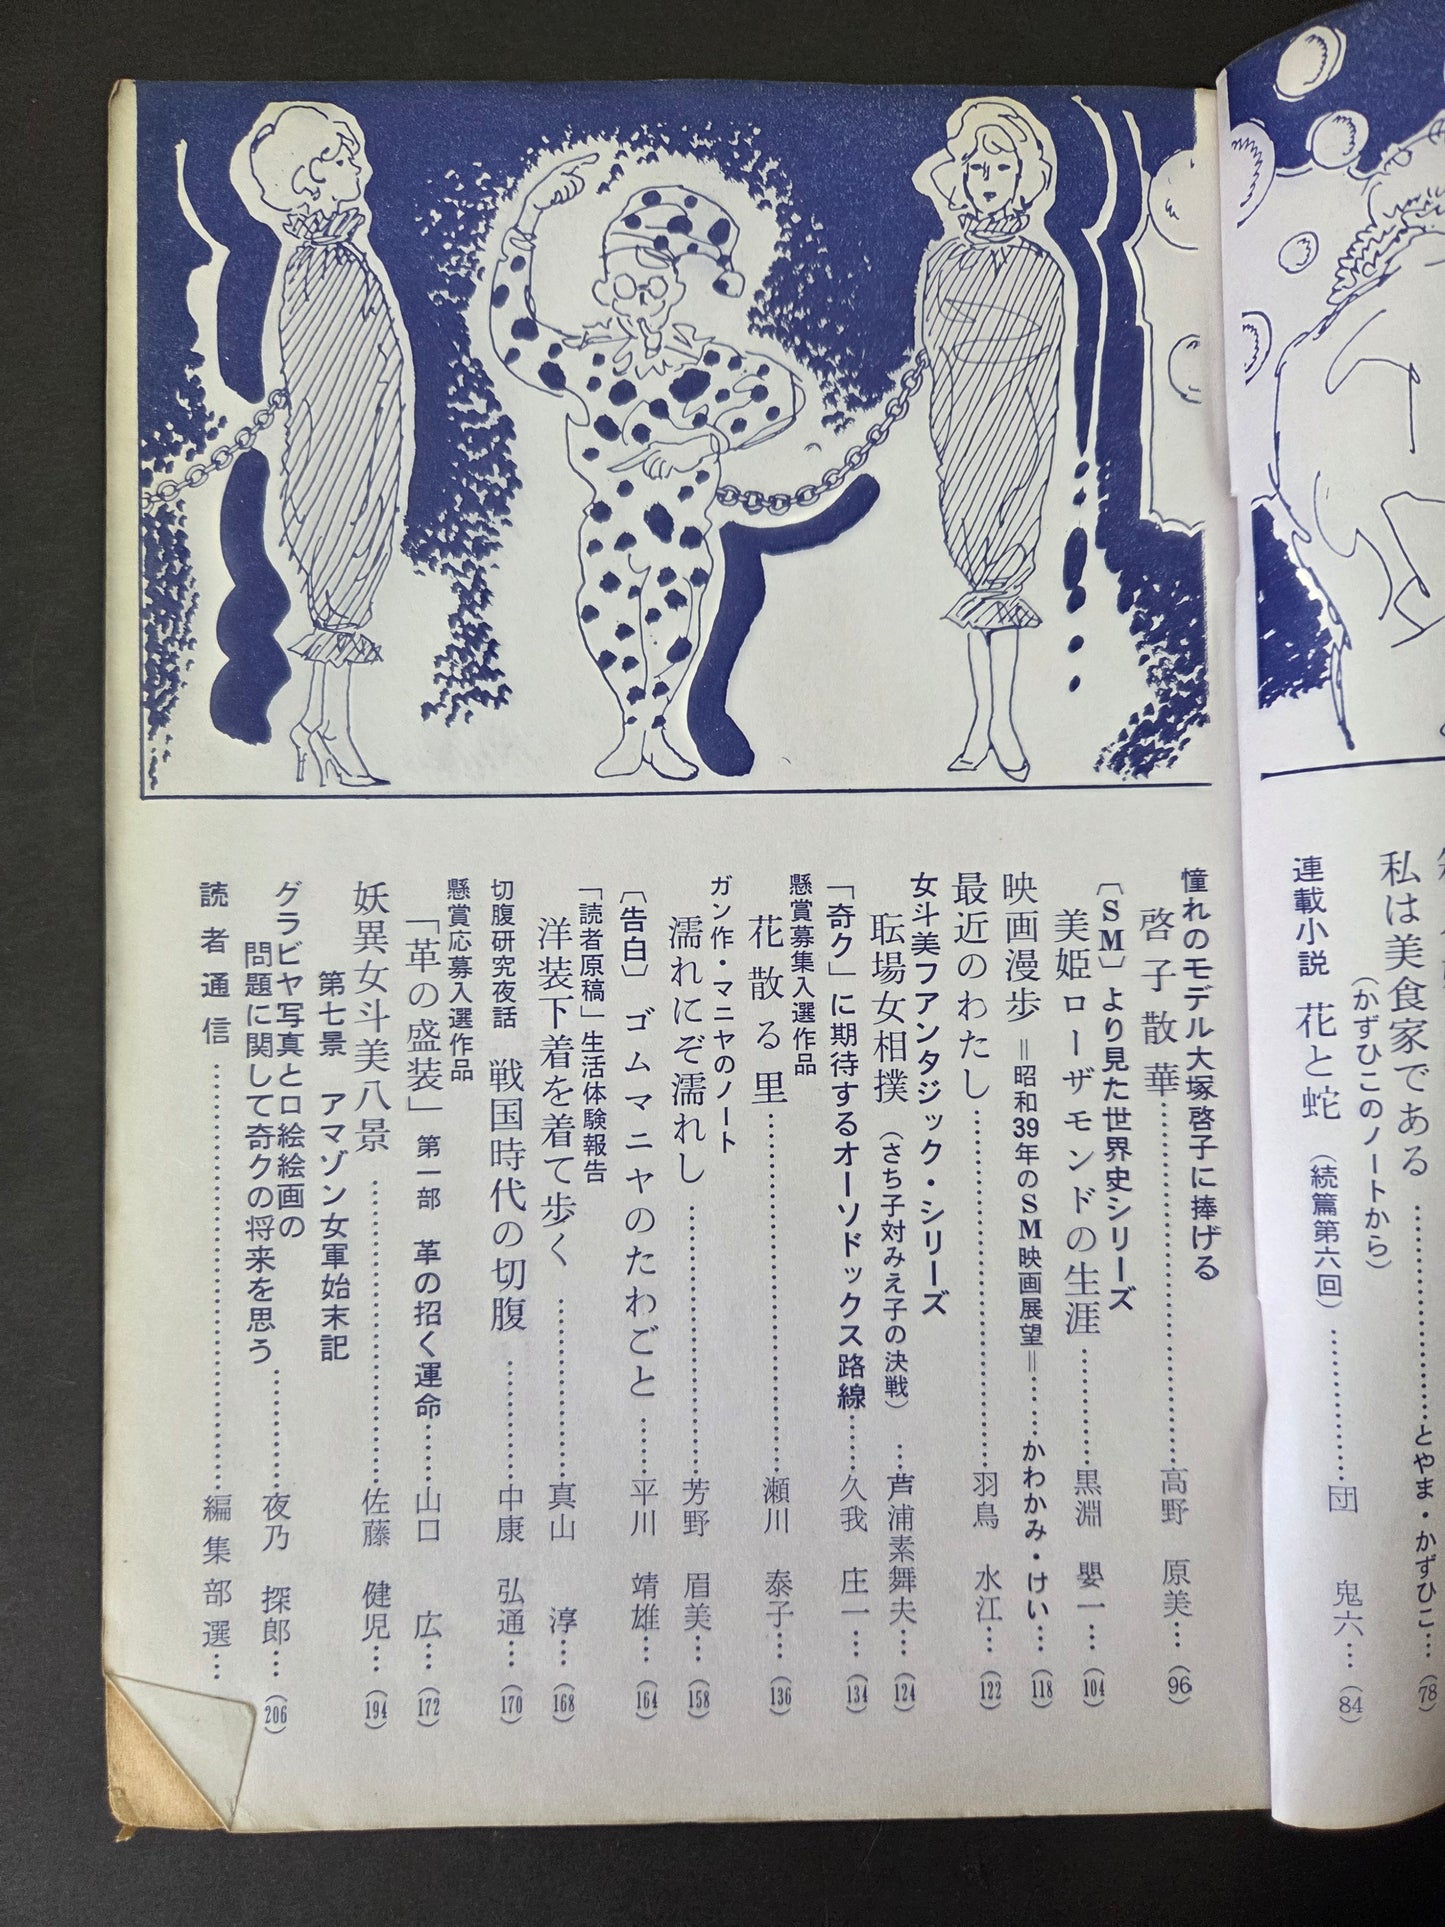 私は美食家である
(かずひこのノートから)
とやま・かずひこ…(78)
連載小説 花と蛇 (続篇第六回)…………団 鬼六…(84)
憧れのモデル大塚啓子に捧げる
啓子散華…………高野 原美…(96)
〔SM〕より見た世界史シリーズ
美姫ローザモンドの生涯…………黒淵 嬰一…(104)
映画漫歩 =昭和39年のSM映画展望=……かわかみ・けい…(118)
最近のわたし…………羽鳥 水江…(122)
女斗美フアンタジック・シリーズ
耺場女相撲 (さち子対みえ子の決戦)…芦浦素舞夫…(124)
「奇ク」に期待するオーソドックス路線……久我 庄一…(134)
懸賞募集入選作品
花散る里…………瀬川 泰子…(136)
ガン作・マニヤのノート
濡れにぞ濡れし…………芳野 眉美…(158)
〔告白〕ゴムマニヤのたわごと……平川 靖雄…(164)
「読者原稿」生活体験報告
洋装下着を着て歩く…………真山 淳…(168)
切腹研究夜話 戦国時代の切腹…………中康 弘通…(170)
懸賞応募入選作品
「革の盛装」 第一部 革の招く運命……山口 広…(172)
妖異女斗美八景…………佐藤 健児…(194)
第七景 アマゾン女軍始末記
グラビヤ写真と口絵絵画の
問題に関して奇クの将来を思う…………夜乃 探郎…(206)
読者通信…………編集部選…